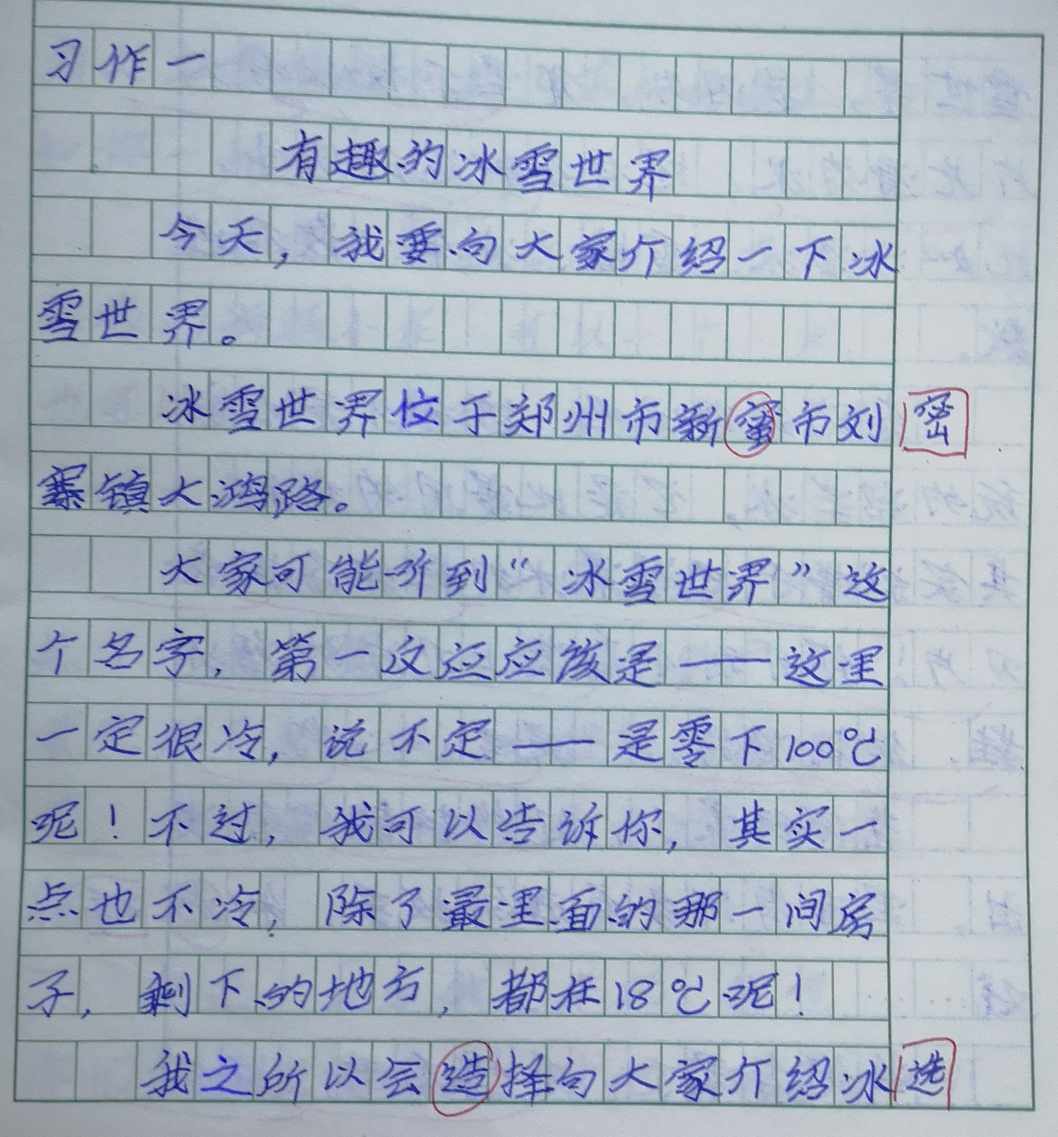 习作一
有趣的冰雪世界
今天，我要向大家介绍一下冰
雪世界。
冰雪世界位于郑州市新蜜市刘 密
寨镇大鸿路。
大家可能听到“冰雪世界”这
个名字，第一反应应该是——这里
一定很冷，说不定——是零下100℃
呢！不过，我可以告诉你，其实一
点也不冷，除了最里面的那一间房
子，剩下的地方，都在18℃呢！
我之所以会造择向大家介绍冰 选